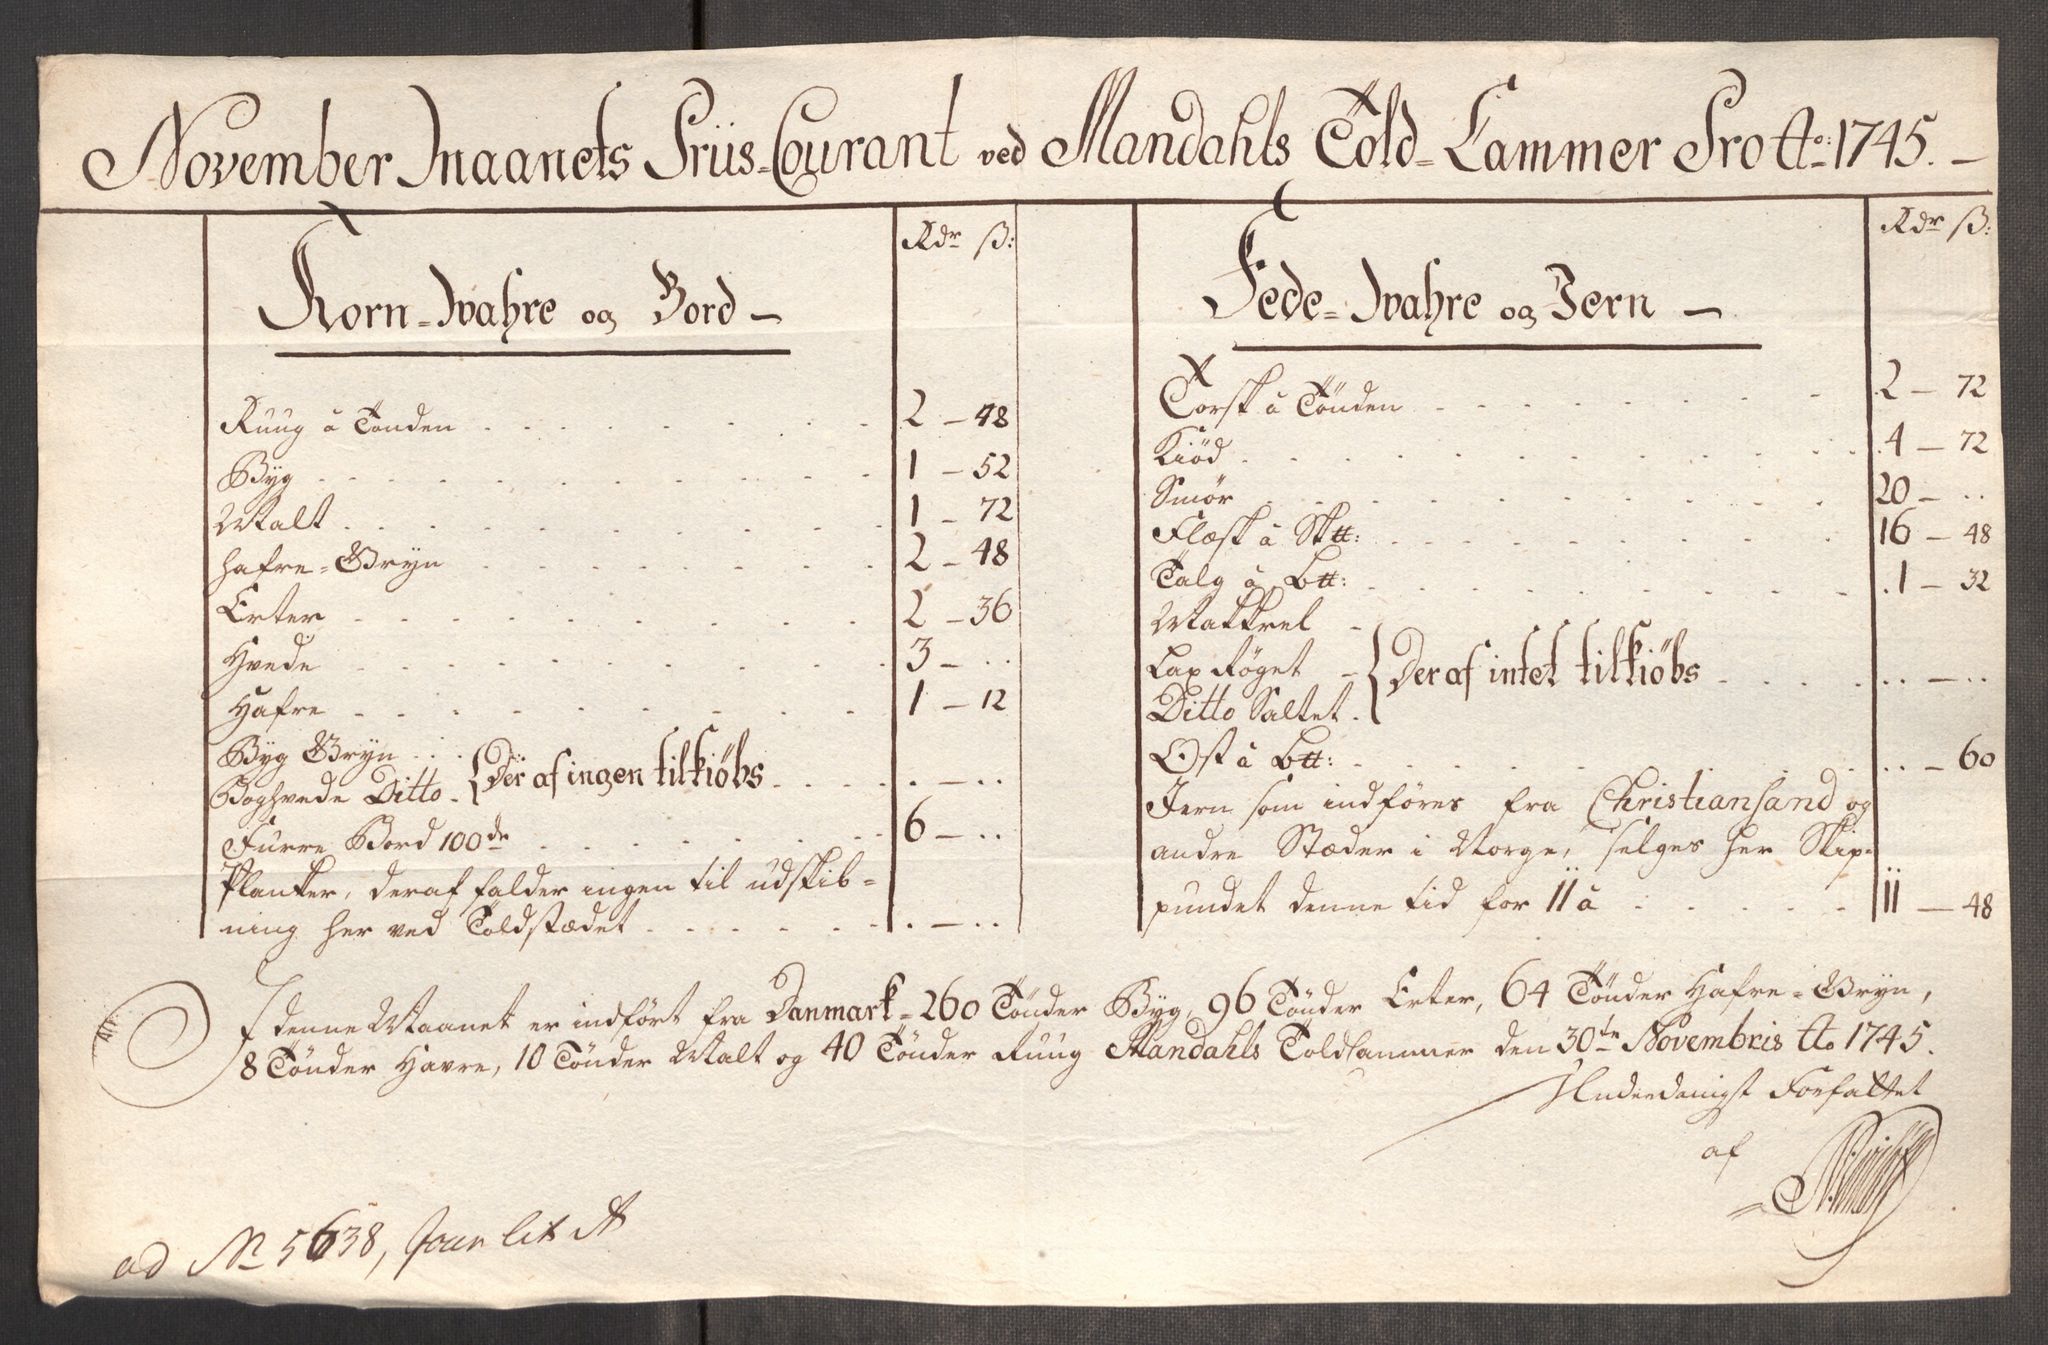 November Maanets Priis-Courant ved Mandahls Told-Cammer Pro Ao: 1745. –
Rdr ß:
Korn-Wahre og Bord –
Ruug â Tønden . . . . . . . . 2 – 48
Byg . . . . . . . . . . . 1 – 52
Malt . . . . . . . . . . 1 – 72
Hafre-Gryn . . . . . . . . 2 – 48
Erter . . . . . . . . . . 2 – 36
Hvede . . . . . . . . . . 3 – ..
Hafre . . . . . . . . . . 1 – 12
Byg Gryn . . .
Boghvede Ditto . { Der af ingen tilkiöbs . . . . . – ..
Furre Bord 100de . . . . . . . 6 – ..
Planker, deraf falder ingen til udskib-
ning her ved Toldstædet . . . . . . . – ..
Rdr ß:
Fede-Wahre og Jern –
Torsk â Tönden . . . . . . . . 2 – 72
Kiöd . . . . . . . . . . . 4 – 72
Smør . . . . . . . . . . 20 – ..
Flæsk â Sktt: . . . . . . . . 16 – 48
Talg â Ltt: . . . . . . . . . 1 – 32
Makkrel –
Lax Röget – { Deraf intet tilkiöbs . . . . .. – ..
Ditto Saltet .
Ost â Ltt: . . . . . . . . . .. – 60
Jern som indföres fra Christiansand og
andre Stæder i Norge, selges her Skip-
pundet denne tid for 11 â . . . . . 11 – 48
I denne Maanet er indfört fra Danmark - 260 Tönder Byg, 96 Tönder Erter, 64 Tönder Hafre-Gryn,
8 Tönder Havre, 10 Tönder Malt og 40 Tönder Ruug Mandahls Toldcammer den 30te Novembris Ao 1745.
Underdanigst Forfattet
af
ad No 5638, Jour lit A